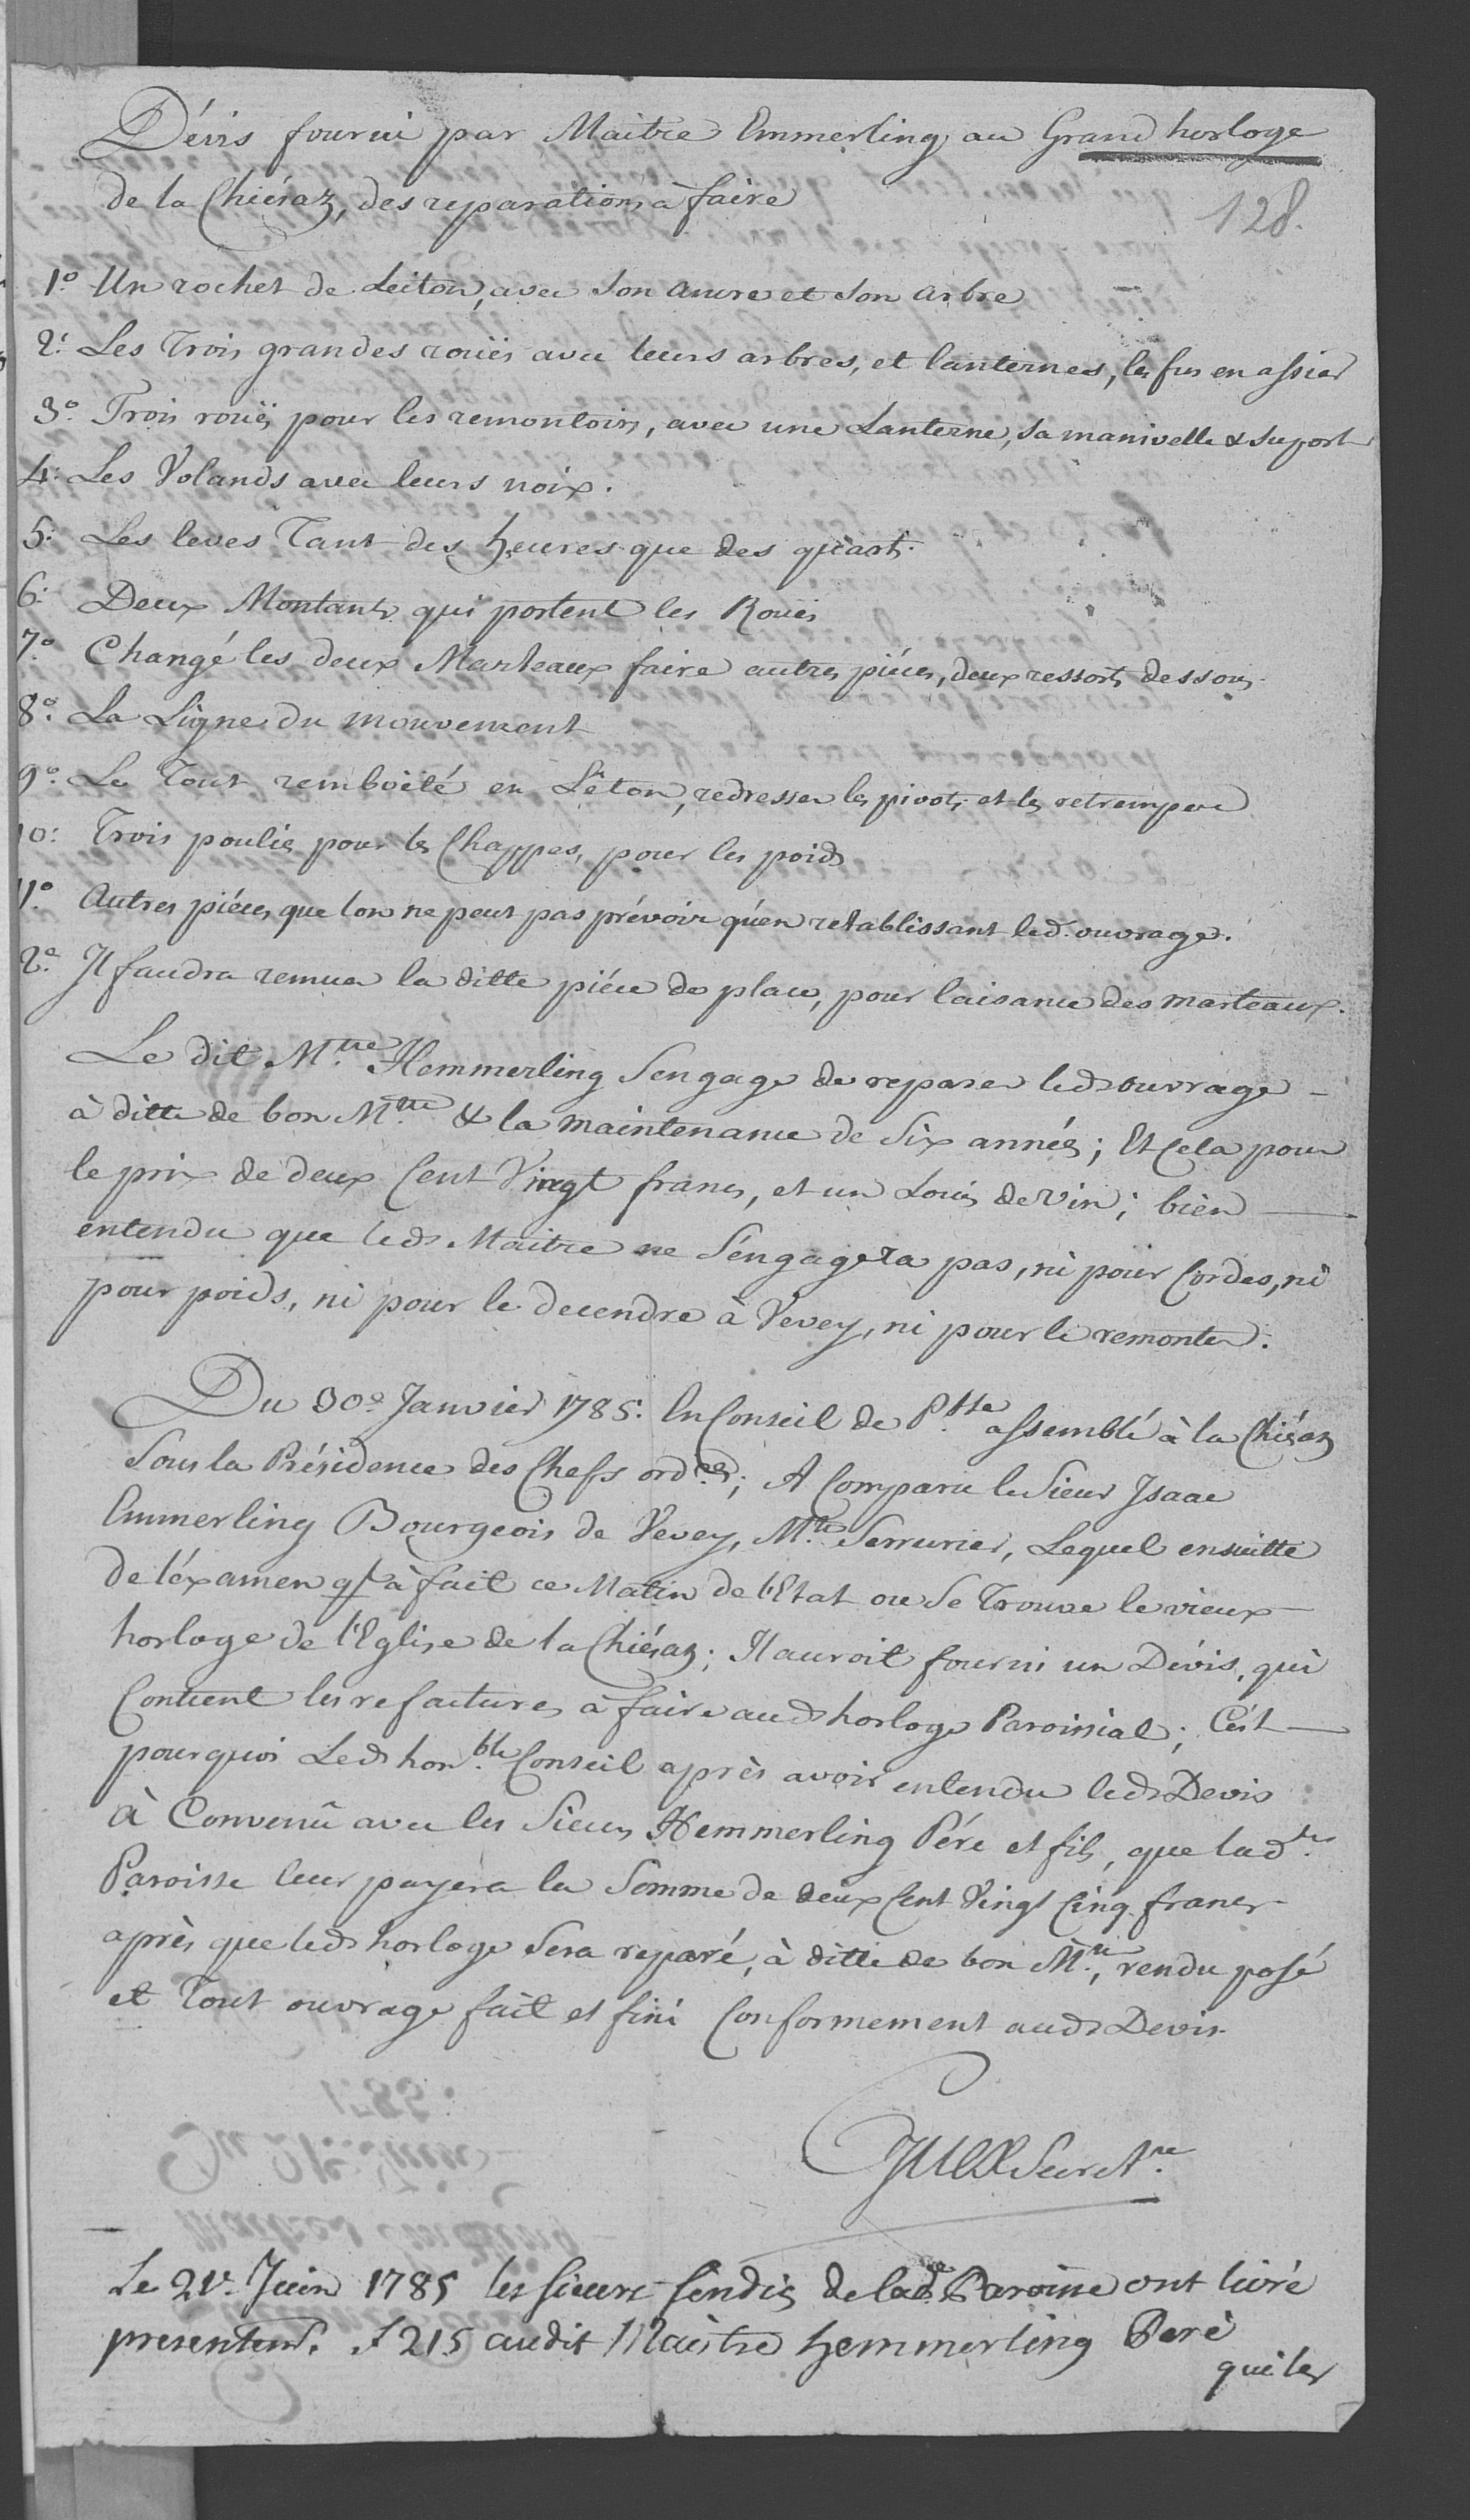 Dévis fourni par Maitre Emmerling au Grand horloge
de la Chiésaz, des reparations à faire
128.
1.° Un rochet de Leiton, avec son ancre et son arbre
2.° Les Trois grandes roües avec leurs arbres, et lanternes, les fus en assier
3.° Trois roües pour les remontoirs, avec une Lanterne, sa manivelle & suport
4: Les Volands avec leurs noix.
5: Les leves Tant des heures que des quarts.
6: Deux Montants qui portent les Roües
7.° Changé les deux Marteaux faire autres piéces, deux ressorts dessous
8.° La Ligne du mouvement
9.° Le Tout remboëté en Léton, redresser les pivots et les retremper
10: Trois poulies pour les Chappes, pour les poids
11.° Autres piéces que l'on ne peut pas prévoir qu'en retablissant led. ouvrage.
2.° Il faudra remuer la ditte piéce de place, pour laisance des marteaux.
Le dit M.tre Hemmerling s'engage de reparer led. ouvrage
à ditte de bon M.tre & la maintenance de Six années; Et Cela pour
le prix de deux Cent Vingt francs, et un Louis de Vin; bien
entendu que led. Maitre ne s'éngagera pas, ni pour Cordes, ni
pour poids, ni pour le decendre à Vevey, ni pour le remonter.
Du 30.e Janvier 1785. En Conseil de P.sse assemblé à la Chiésaz
Sous la Présidence des Chefs ord.res; A Comparu le Sieur Isaac
Emmerling Bourgeois de Vevey, M.tre Serrurier, Lequel ensuitte
de l'éxamen ql à fait ce Matin de l'Etat ou se Trouve le vieux
horloge de l'Eglise de la Chiésaz; Il auroit fourni un Dévis, qui
Contient les refactures à faire aud. horloge Paroissial; C'est
pourquoi Led. hon.ble Conseil après avoir entendu led. Devis
à Convenû avec les Sieurs Hemmerling Pére et fils, que lad.te
Paroisse leur payera la Somme de deux Cent Vingt Cinq francs
après que led. horloge Sera reparé, à ditte de bon M.tre, rendu posé
et Tout ouvrage fait et fini Conformement aud. Devis.
Secret.re
Le 21.e Juin 1785 les sieurs sindis de lad. Paroisse ont livré
presentem.t f 215 audit Maitre hemmerling Peré
qui les